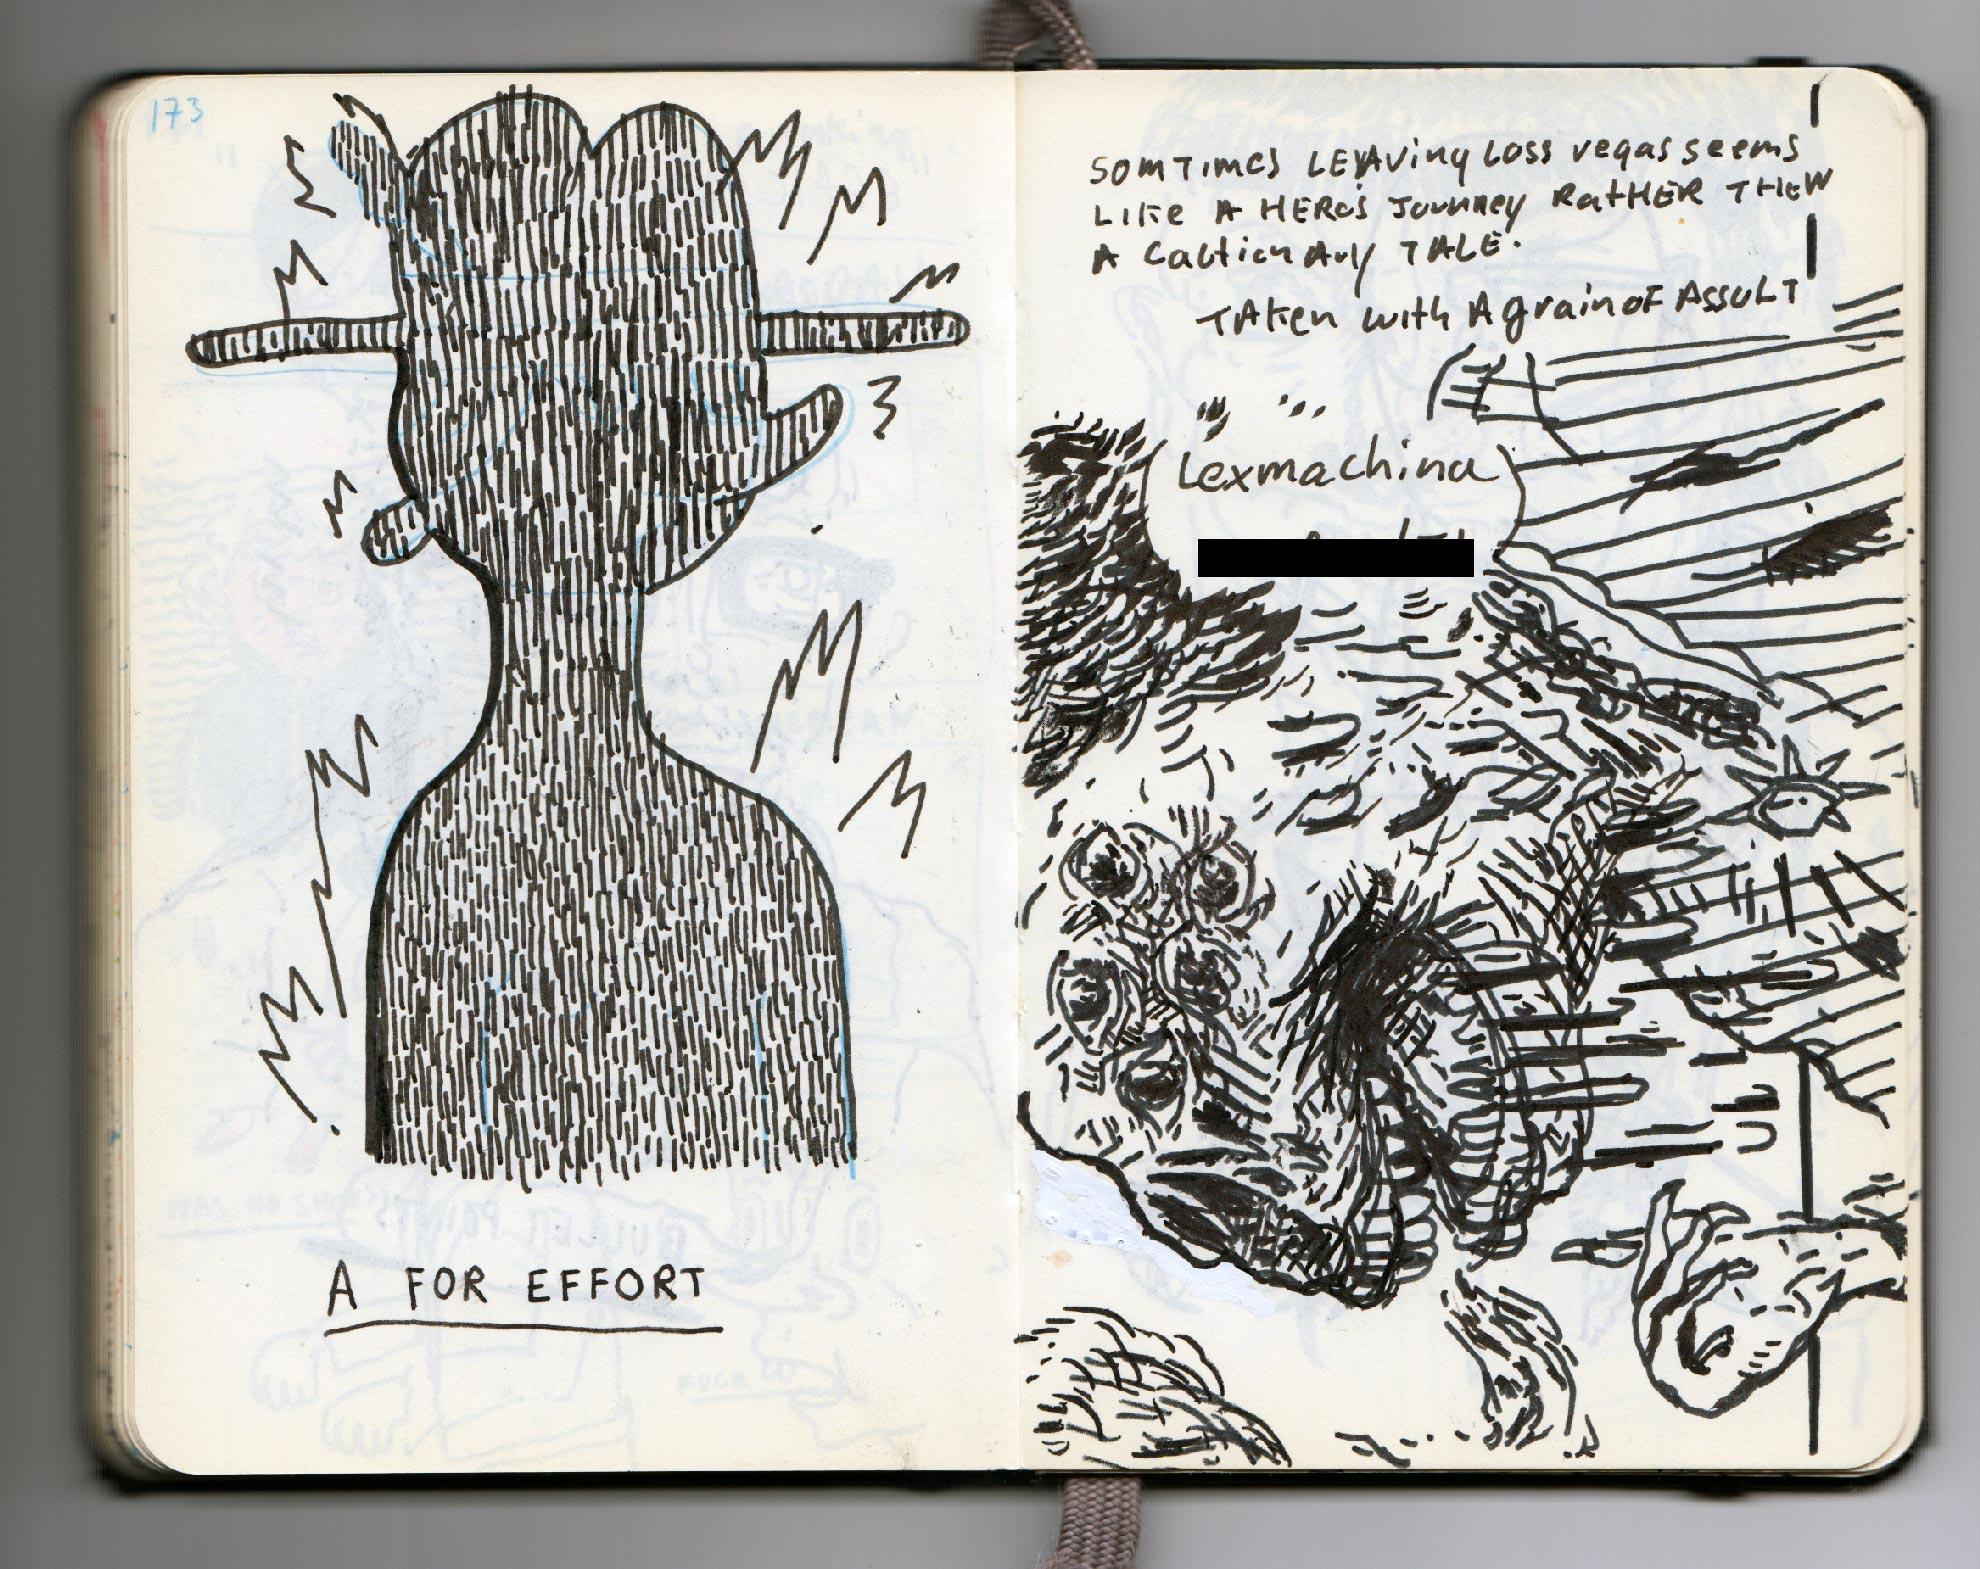 173
A FOR EFFORT
SOMTIMES LEAVING LOSS vegas seems
LIKE A HERO'S JOURNEY RATHER THEN
A CAUTIONARY TALE.
TAKEN WITH A grain of ASSULT
Lexmachina